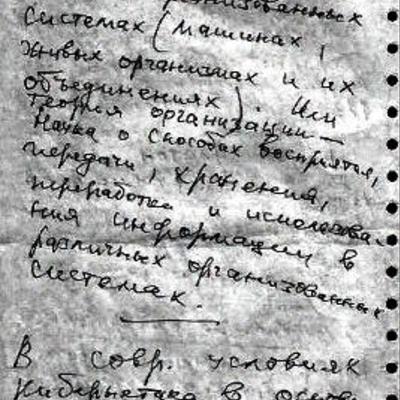 организованных
системах (машинах,
живых организмах и их
объединениях). Или
теория организации —
наука о способах восприятия,
передачи, хранения,
переработки и использова-
ния информации в
различных организованных
системах.
В совр. условиях
кибернетика в основ